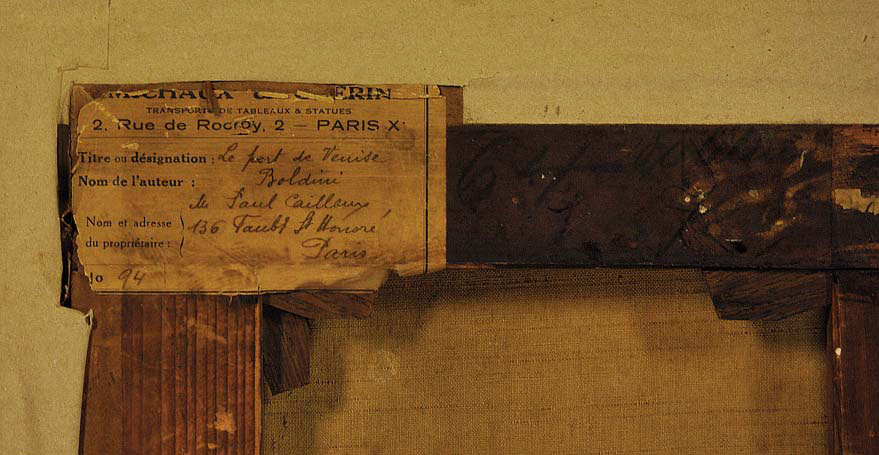 MICHAUX & GUERIN
TRANSPORTS DE TABLEAUX & STATUES
2, Rue de Rocroy, 2 — PARIS X
Titre ou désignation : Le port de Venise
Nom de l'auteur : Boldini
M Paul Cailleux
Nom et adresse du propriétaire : 136 Faubg St Honoré
Paris
No 94